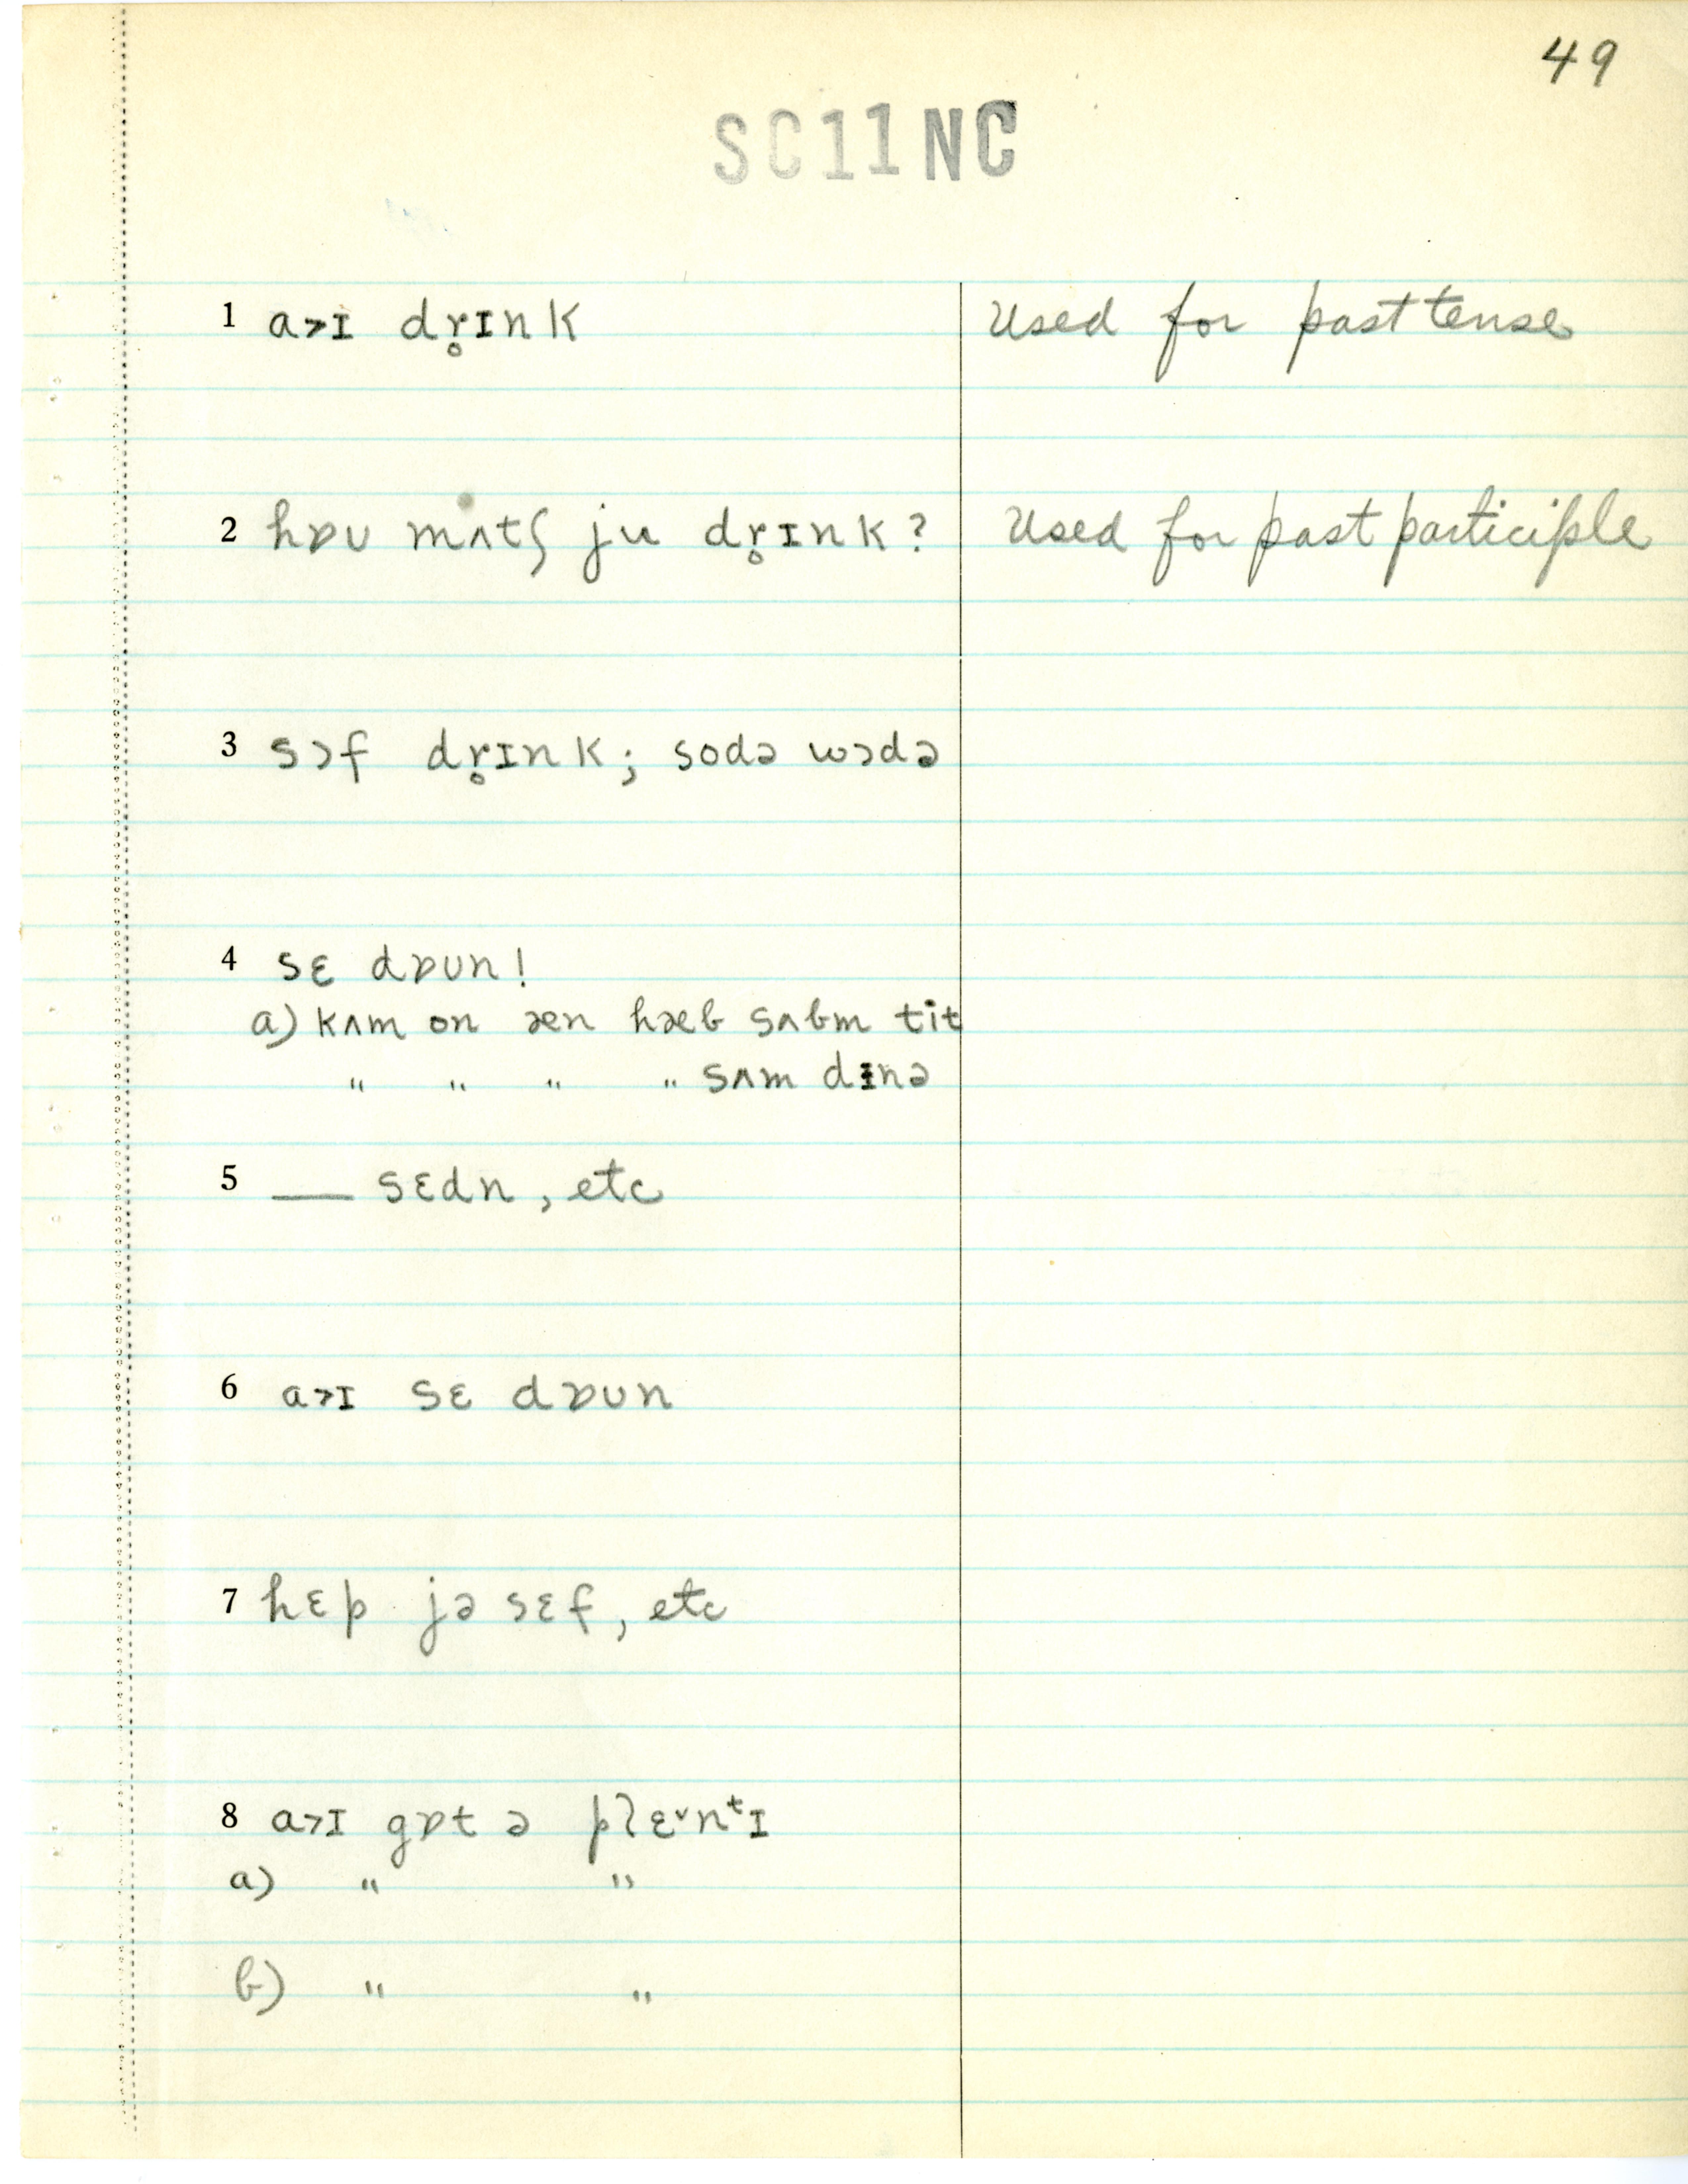 49
SC11NC
1 a>ɪ dr̥ɪnk Used for past tense
2 hɒʊ mʌtʃ ju dr̥ɪnk? Used for past participle
3 sɔf dr̥ɪnk; sodə wɔdə
4 sɛ dɒʊn!
a) kʌm on æn hæb sʌbm tit
" " " " sʌm dɪnə
5 — sɛdn, etc
6 a>ɪ sɛ dɒʊn
7 hɛp jə sɛf, etc
8 a>ɪ gɒt ə plɛ˅nᵗɪ
a) " "
b) " "